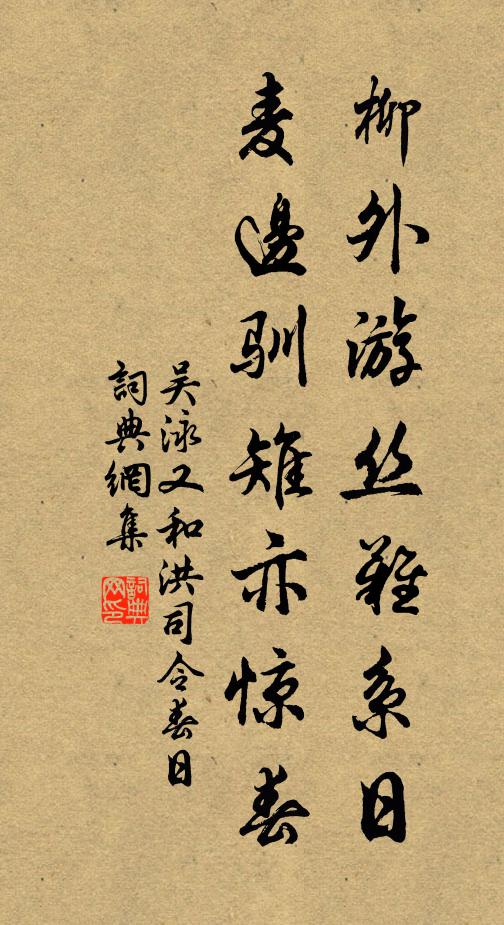 柳外游丝难系日
麦邊驯雉亦惊春
吴泳又和洪司令春日
詞典網集
詞典網印